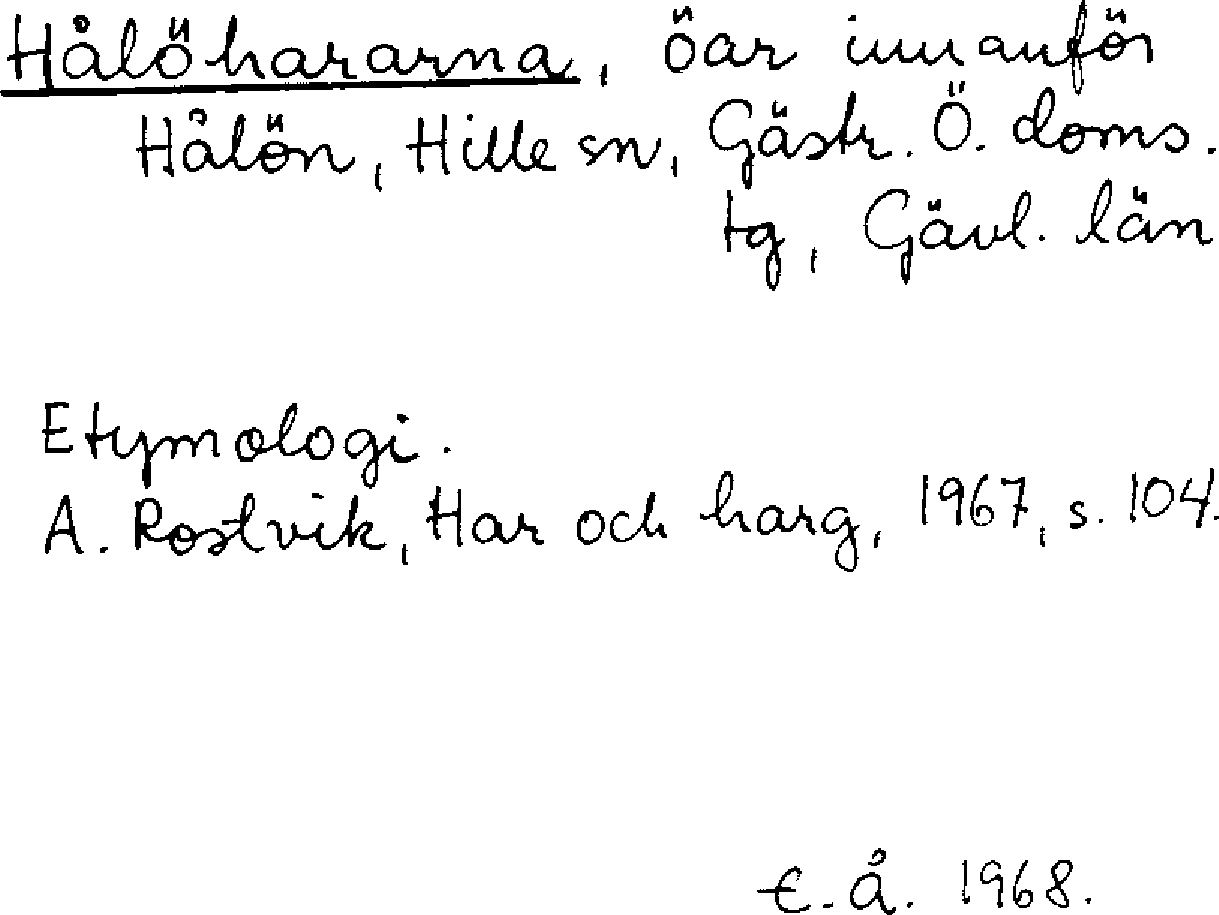 Hålöhararna, öar innanför
Hålön, Hille sn, Gästr. Ö. doms.
tg, Gävl. län
Etymologi.
A. Rostvik, Har och harg, 1967, s. 104.
E. Å. 1968.